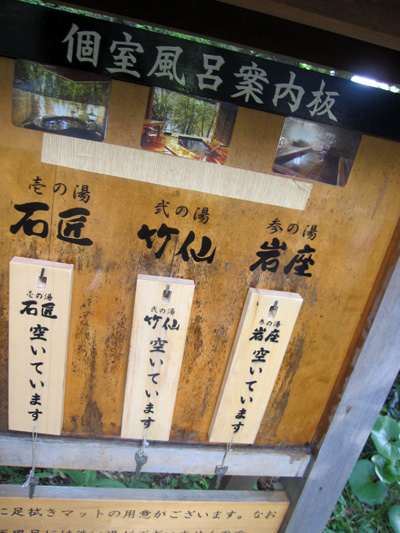 個室風呂案内板
壱の湯
石匠
弐の湯
竹仙
参の湯
岩座
壱の湯
石匠
空いています
弐の湯
竹仙
空いています
参の湯
岩座
空いています
に足拭きマットの用意がございます。なお